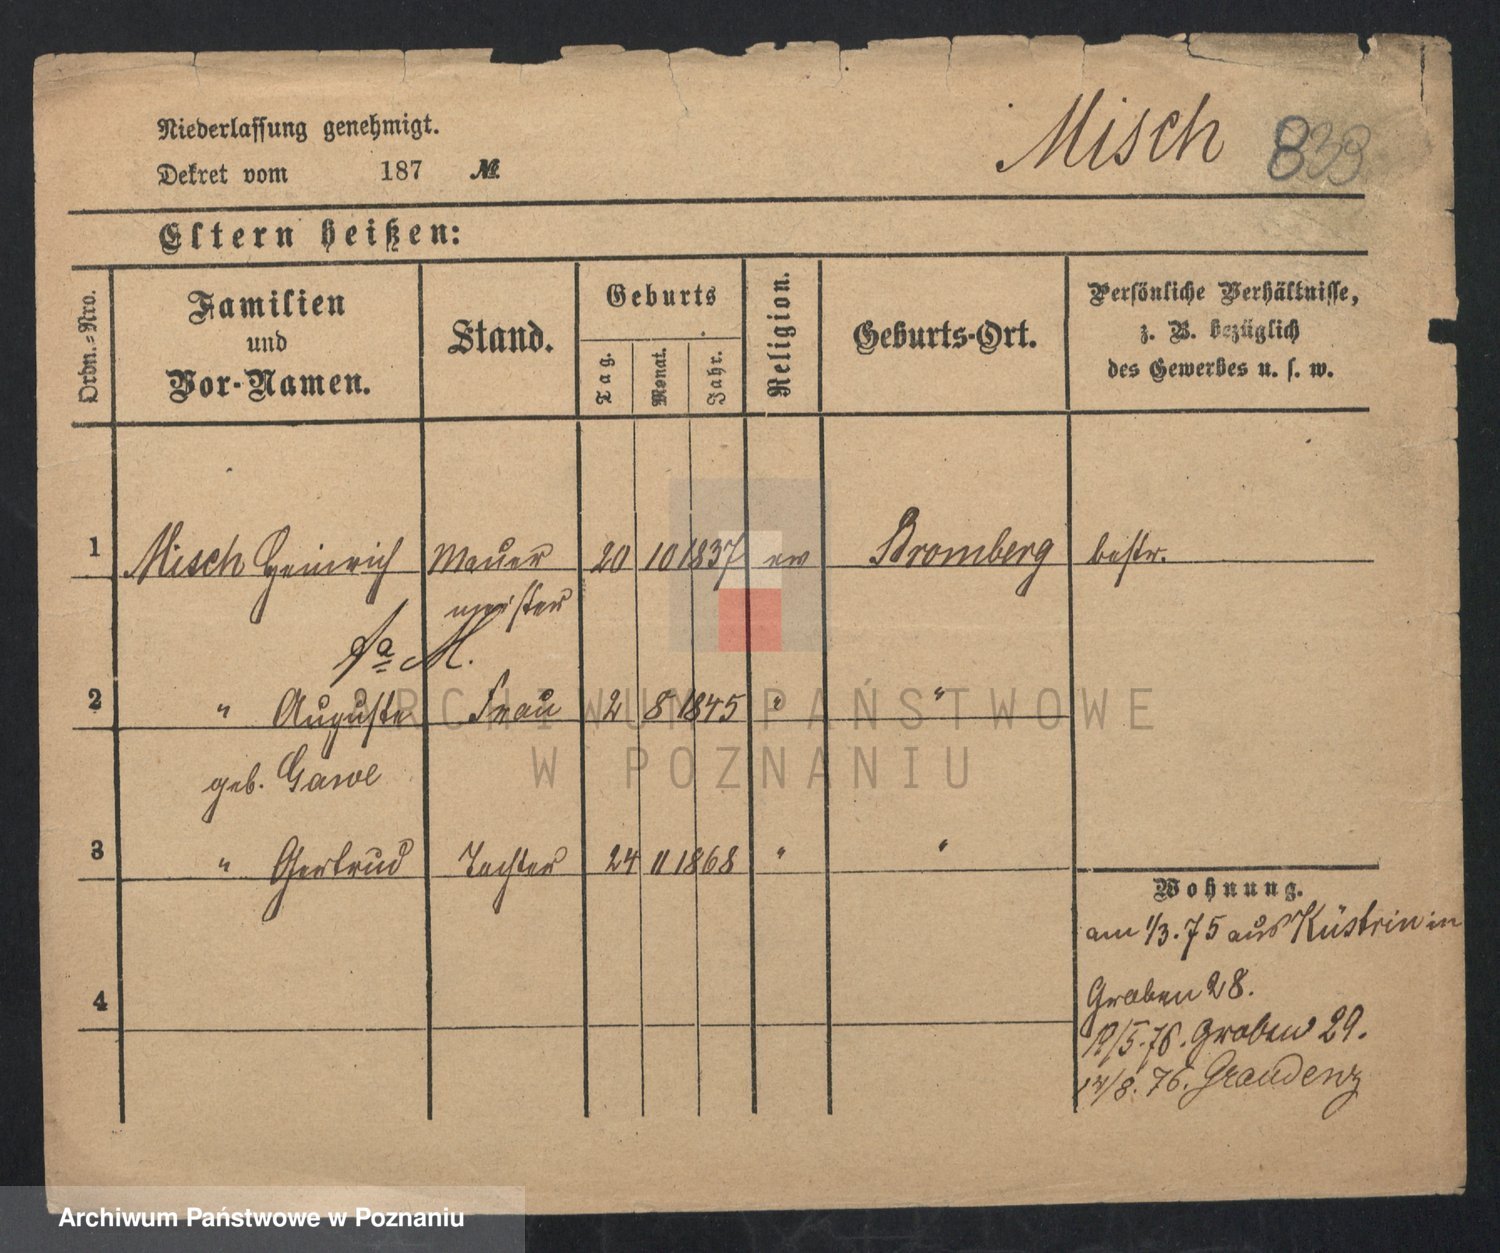 Niederlassung genehmigt.
Dekret vom 187 №
Misch 839
Eltern heißen:
Ordn.-Nro.
Familien und Vor-Namen.
Stand.
Geburts
Tag.
Monat.
Jahr.
Religion.
Geburts-Ort.
Persönliche Verhältnisse,
z. B. bezüglich
des Gewerbes u. s. w.
1 Misch Heinrich Maurer 20 10 1837 ev Bromberg bestr.
meister
M.
2 " Auguste Frau 2 8 1845 " "
geb. Gawe
3 " Gertrud Tochter 24 11 1868 " "
Wohnung.
am 1/3.75 aus Küstrin in
Graben 28.
4
12/5.76. Graben 29.
/8.76. Graudenz
ARCHIWUM PAŃSTWOWE
W POZNANIU
Archiwum Państwowe w Poznaniu